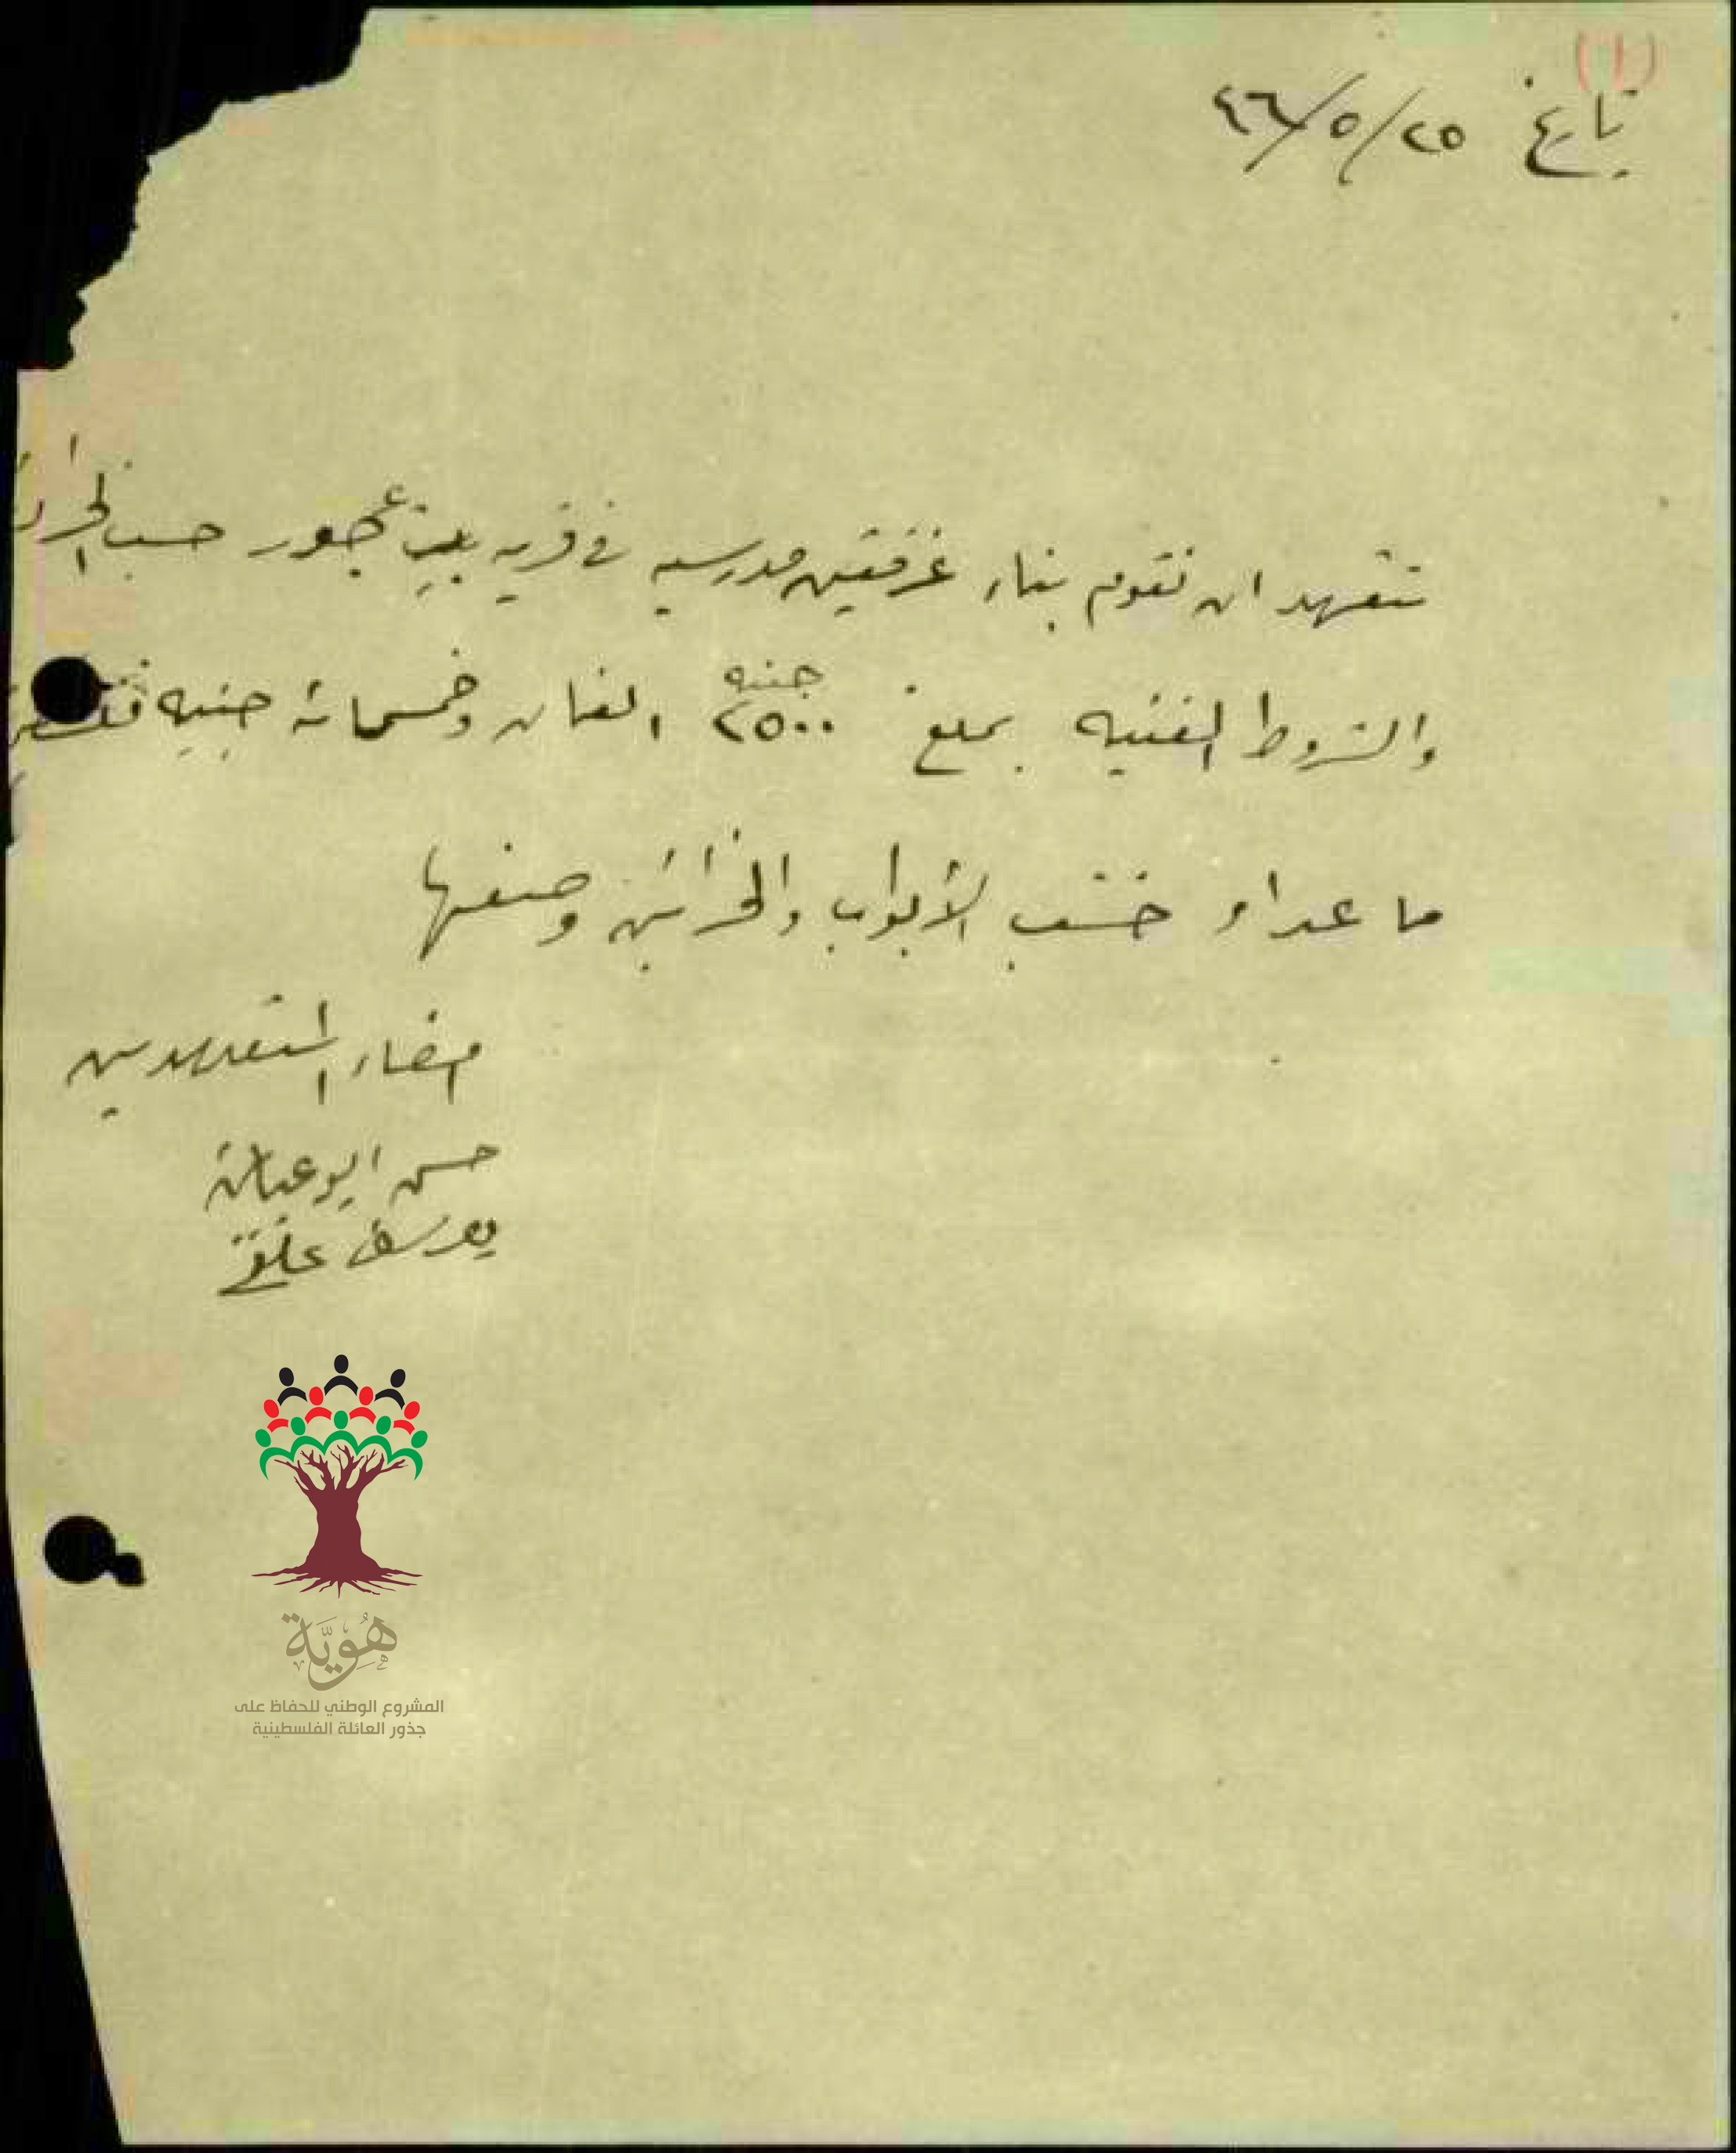 (١)
تاريخ ٢٥/٥/٤٦
نتعهد ان نقوم بناء غرفتين مدرسيه في قريه بيت عجور حسب
والشروط الفنيه بمبلغ ٢٥٠٠ جنيه الفان وخمسمائة جنيه
ما عدا خشب الأبواب والخزائن وصنعها
امضاء المتعهدين
حسن ابو
يوسف
هُوِيَّة
المشروع الوطني للحفاظ على
جذور العائلة الفلسطينية